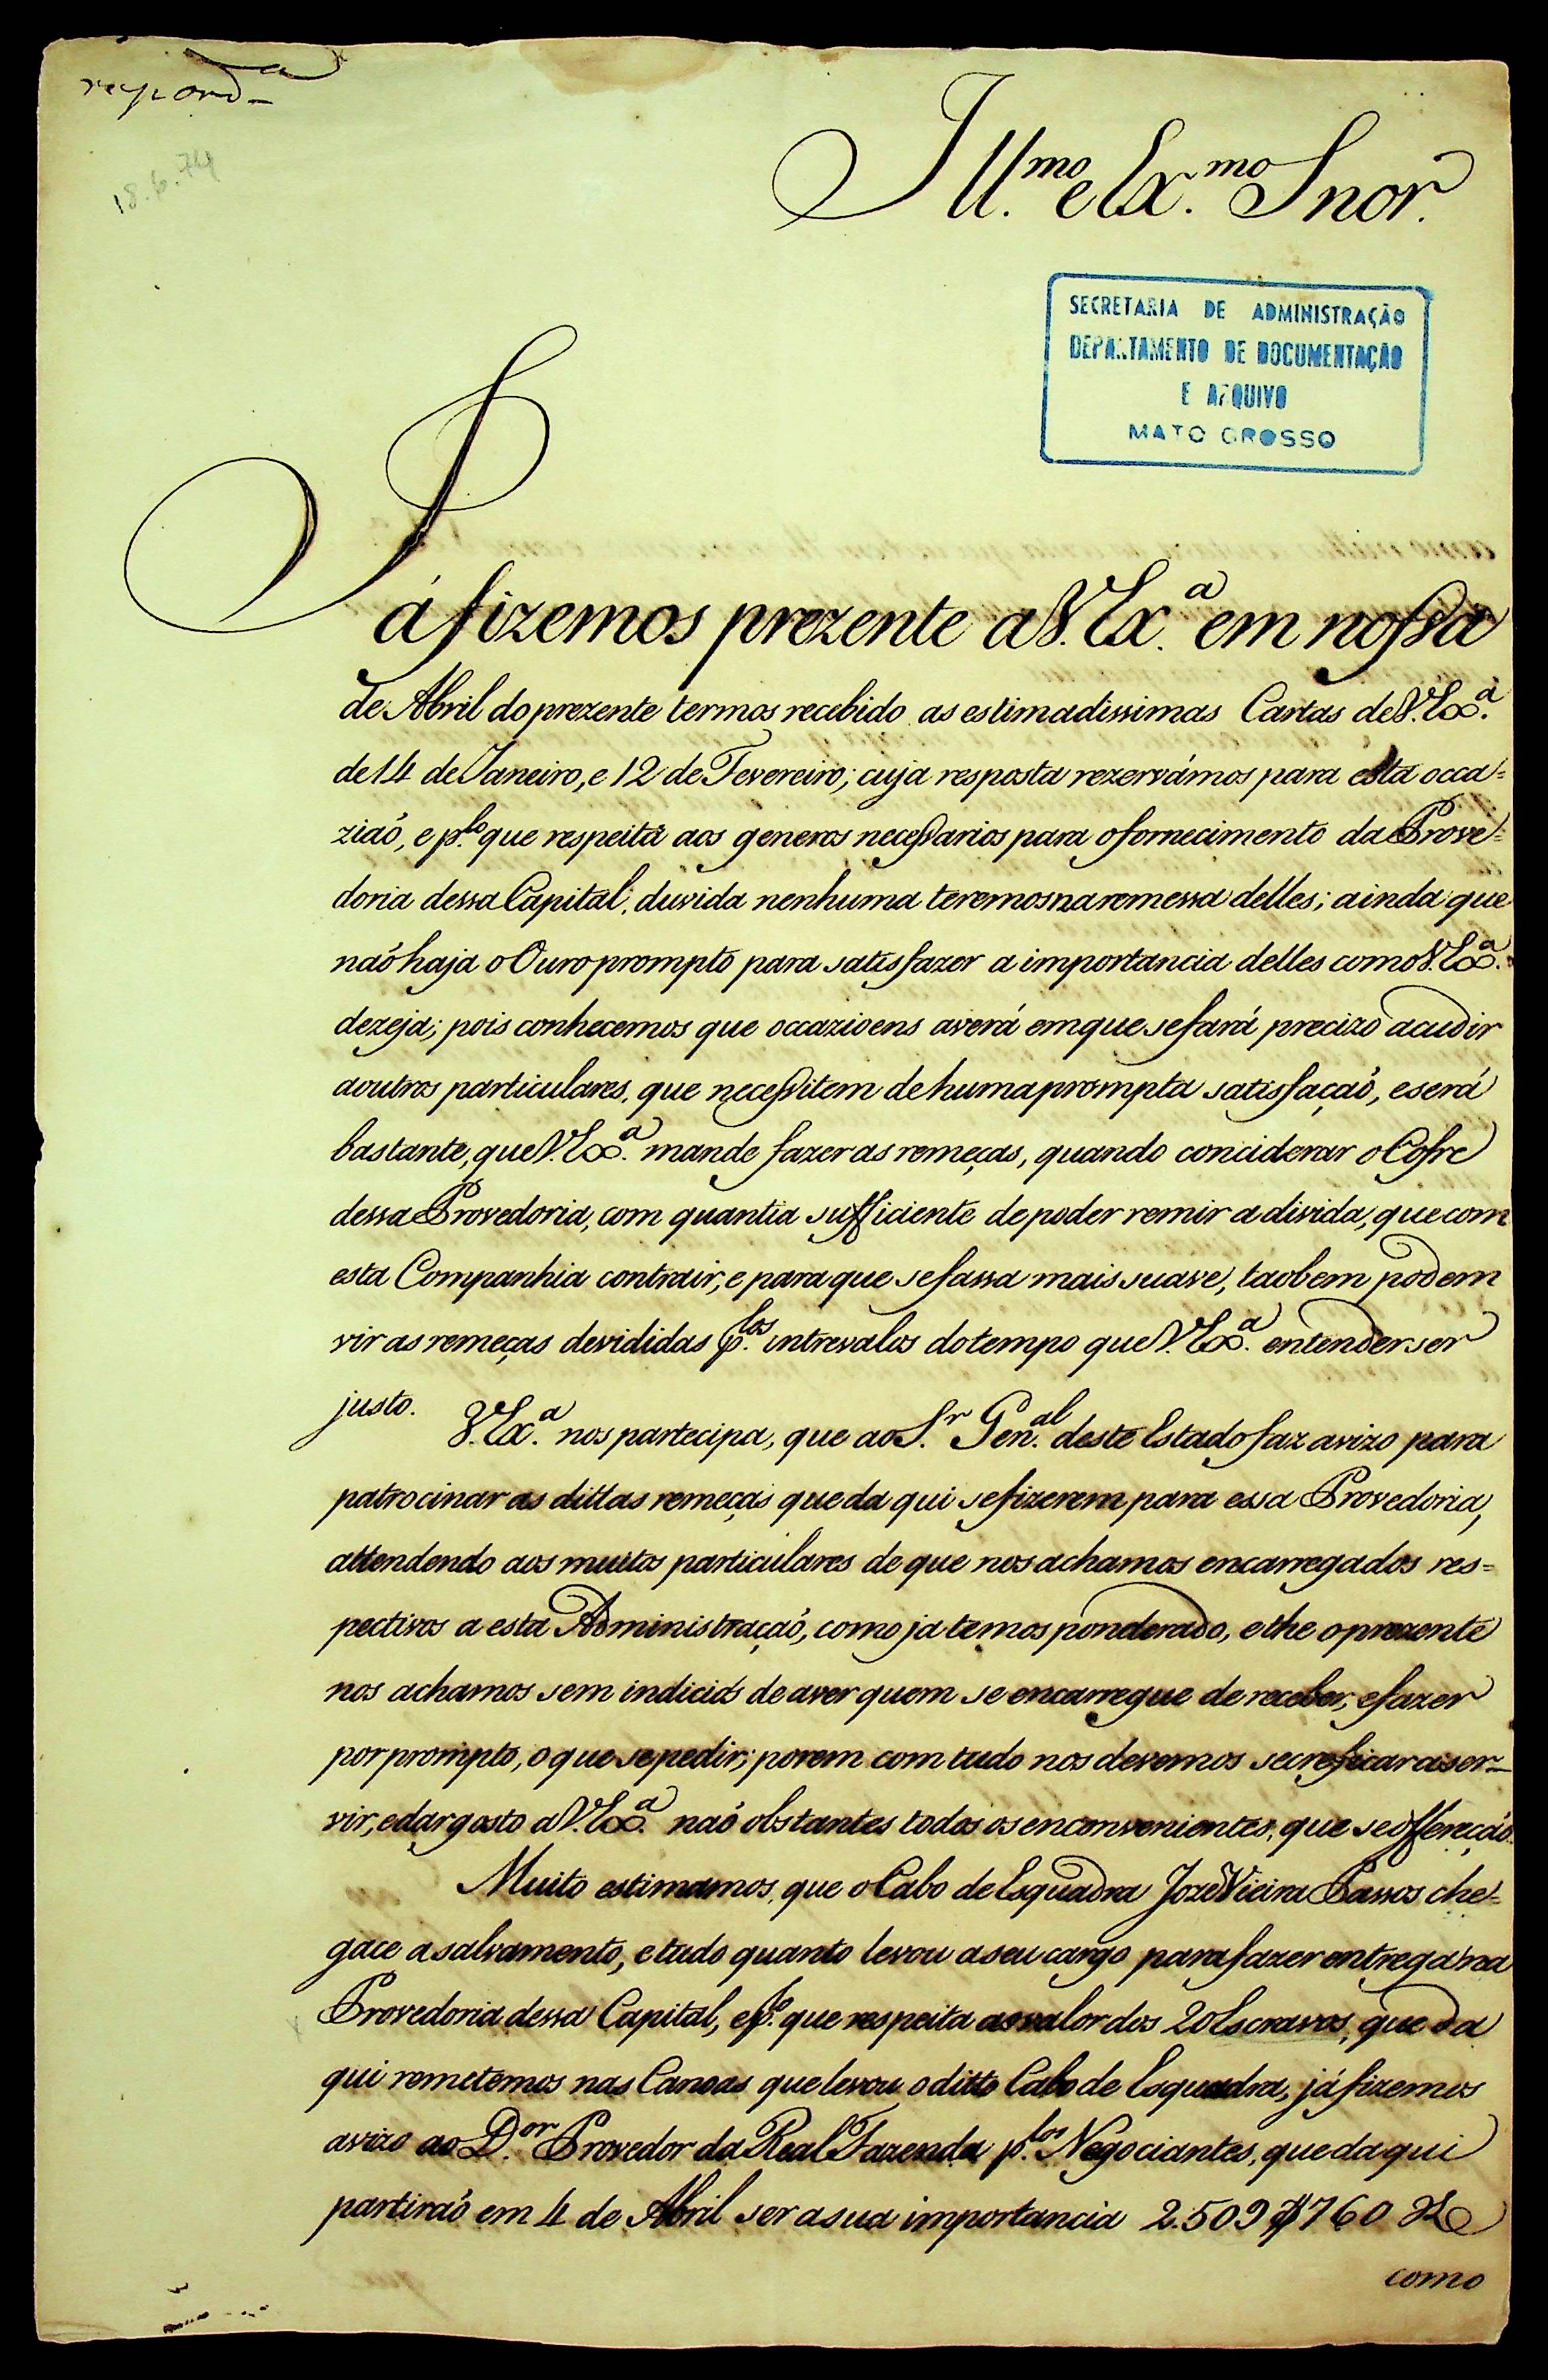 respond.ª
18.6.74
Ill.mo e Ex.mo Snor.
SECRETARIA DE ADMINISTRAÇÃO
DEPARTAMENTO DE DOCUMENTAÇÃO
E ARQUIVO
MATO GROSSO
Já fizemos prezente a V. Ex.ª em nossa
de Abril do prezente termos recebido as estimadissimas Cartas de V. Ex.ª
de 14 de Janeiro, e 12 de Fevereiro; cuja resposta rezervámos para esta occa=
ziaõ, e p.lo que respeita aos generos necessarios para o fornecimento da Prove=
doria dessa Capital, duvida nenhuma teremos na remessa delles; ainda que
naõ haja o Ouro prompto para satisfazer a importancia delles como V. Ex.ª
dezeja; pois conhecemos que occazioens averá em que se fará precizo acudir
a outros particulares, que necessitem de huma prompta satisfaçaõ, e será
bastante, que V. Ex.ª mande fazer as remeças, quando conciderar o Cofre
dessa Provedoria, com quantia sufficiente de poder remir a divida, que com
esta Companhia contrair, e para que se fassa mais suave, taobem podem
vir as remeças devididas p.los intrevalos do tempo que V. Ex.ª entender ser
justo.
V. Ex.ª nos partecipa, que ao S.r Gen.al deste Estado faz avizo para
patrocinar as dittas remeças que da qui se fizerem para essa Provedoria,
attendendo aos muitos particulares de que nos achamos encarregados res=
pectivos a esta Administraçaõ, como ja temos ponderado, e the o prezente
nos achamos sem indicios de aver quem se encarregue de receber, e fazer
por prompto, o que se pedir; porem com tudo nos devemos secreficar a ser=
vir, e dar gosto a V. Ex.ª naõ obstantes todos os enconvenientes, que se offereçaõ.
Muito estimamos, que o Cabo de Esquadra Jozé Vieira Passos che=
gace a salvamento, e tudo quanto levou a seu cargo para fazer entrega na
Provedoria dessa Capital, e p.lo que respeita ao valor dos 20 Escravos, que da
qui remetemos nas Canoas que levou o ditto Cabo de Esquadra, já fizemos
avizo ao D.or Provedor da Real Fazenda p.los Negociantes, que da qui
partiraõ em 4 de Abril ser a sua importancia 2.509$760 Rs
como